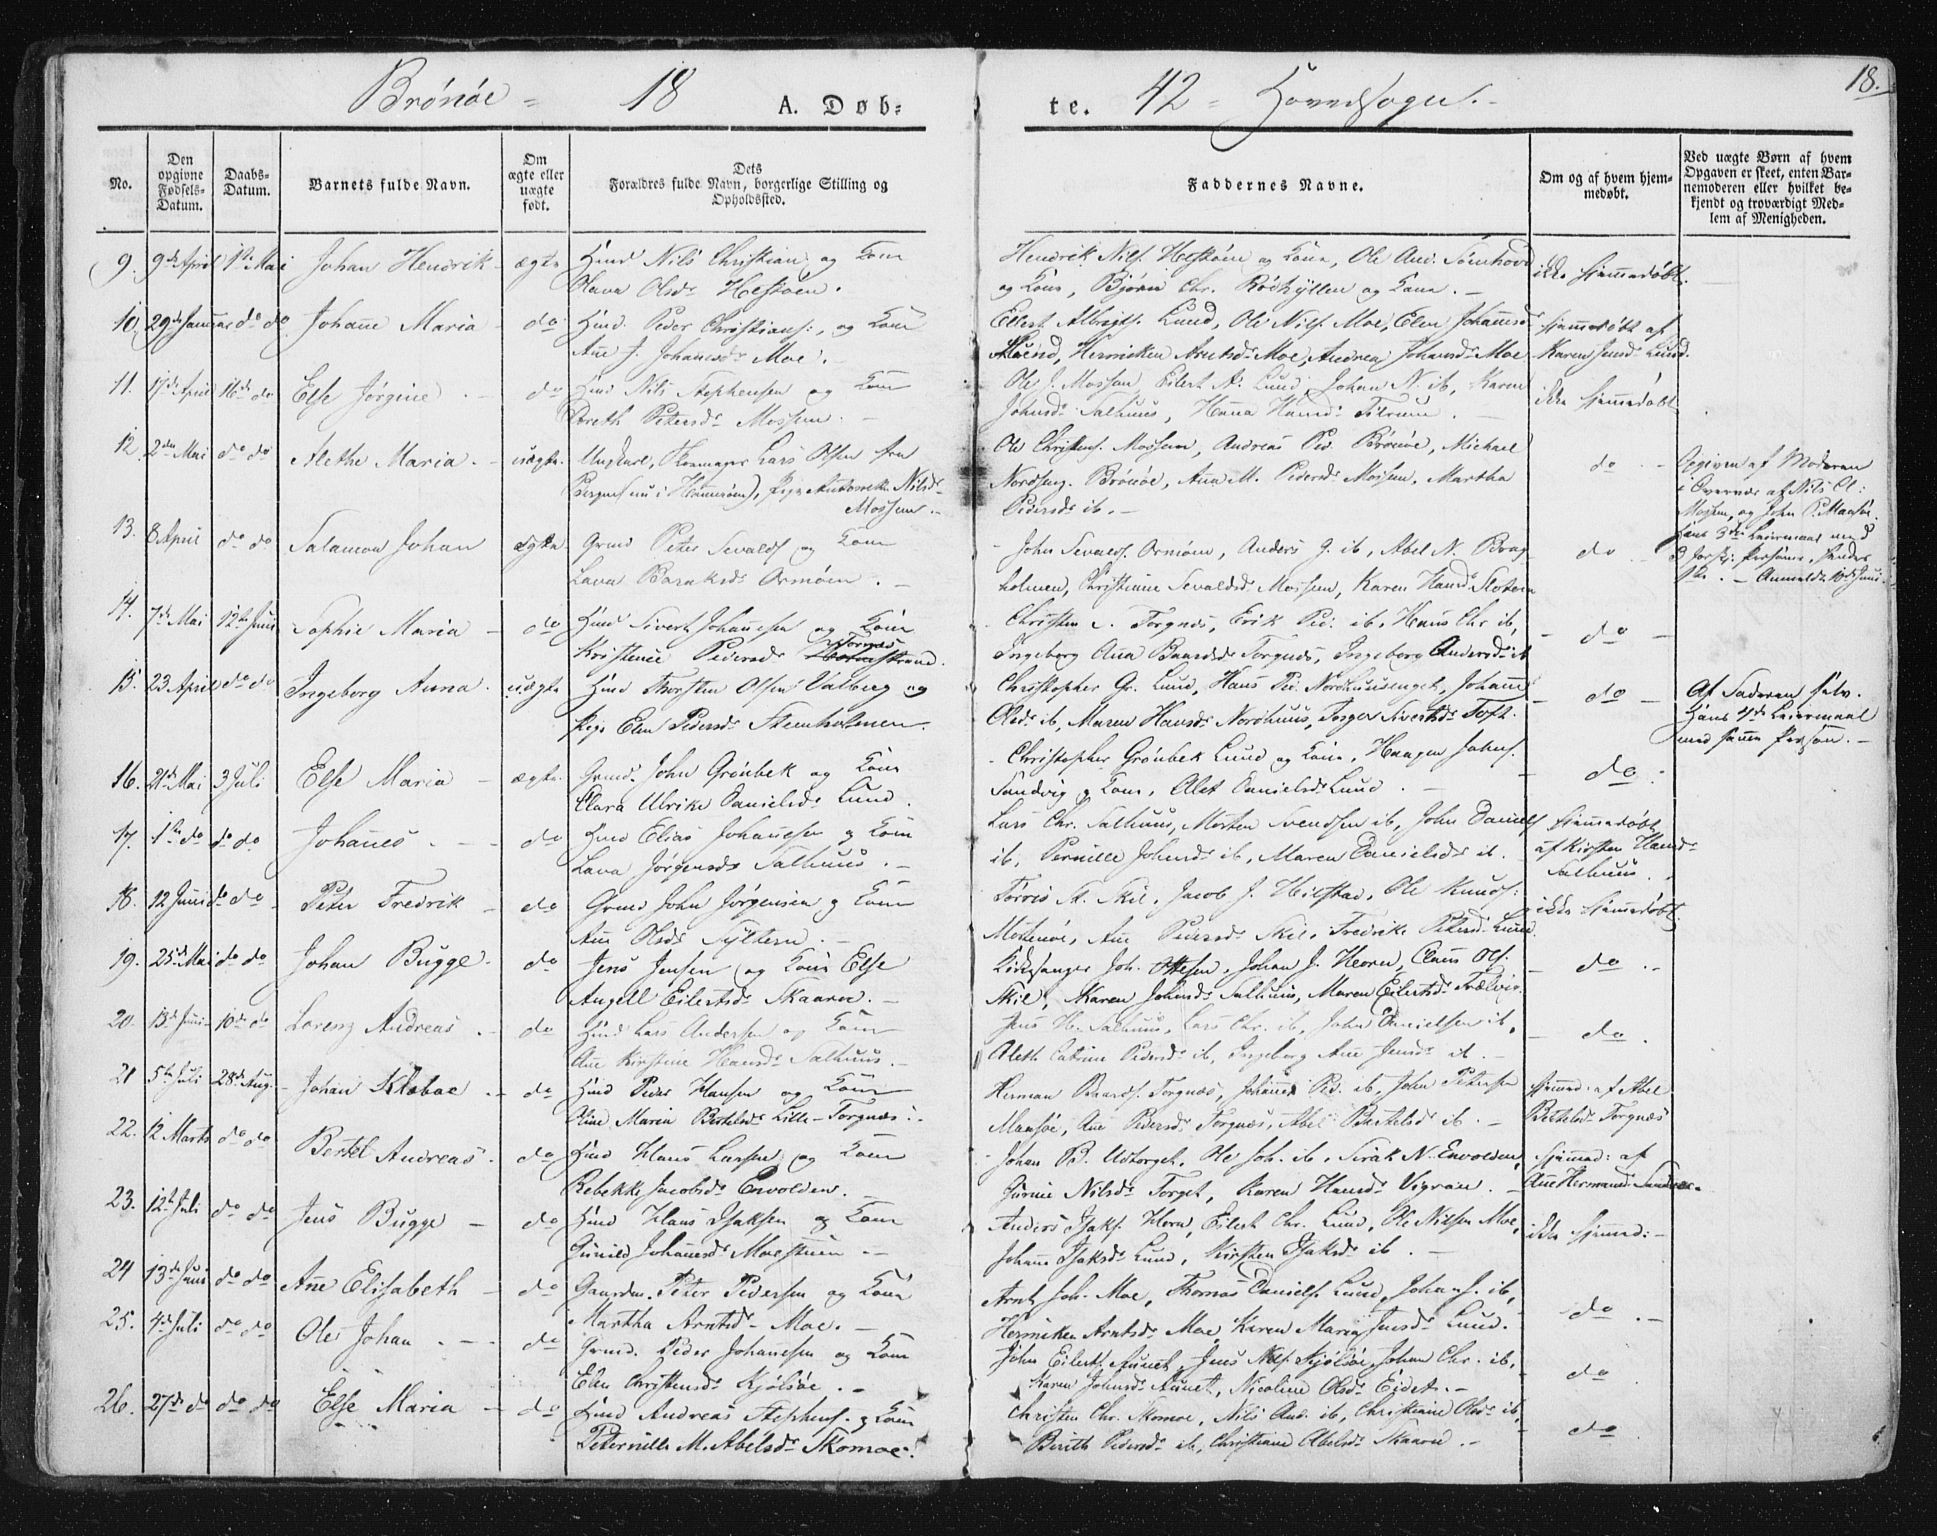 Brönöe - 18 A. Døb-
te. 42 - Hovedsogn. -
18.
No.
Den opgivne Fødsels-Datum.
Daabs-Datum.
Barnets fulde Navn.
Om ægte eller uægte født.
Dets Forældres fulde Navn, borgerlige Stilling og Opholdssted.
Faddernes Navne.
Om og af hvem hjemmedøbt.
Ved uægte Børn af hvem Opgaven er skeet, enten Barnemoderen eller hvilket bekjendt og troværdigt Medlem af Menigheden.
9. 9de April 1ste Mai Johan Hendrik - ægte Huusmd Nils Christian og Kone
Olava Olsdr Helstøen.
Hendrik Nils. Helstøen og Kone, Ole And.
og Kone, Björn Chr. Rödhyllen og Kone. -
ikke hjemmedøbt.
10. 29de Januar do do Johanne Maria - do Huusmd. Peder Christians:, og Kone
Ane J. Johansdr Moe. -
Eilert Albrigts. Lund, Ole Nils. Moe, Elen Johannesdr
Lund, Hermikken Arntsdr Moe, Andrea Johansdr Moe
hjemmedøbt af
Karen Jensdr Lund.
11. 17de April 16de do Else Jörgine. - do Huusmd Nils Stephensen og Kone
Bereth Petersdr Mossem. -
Ole J. Mossem, Eilert A. Lund, Johan N. ib, Karen
Johnsdr Salhuus, Hanna Hansdr Tilrum. -
ikke hjemmedøbt
12. 2den Mai do do Alethe Maria. - uægte. Ungkarl, Lars Olsen fra
Pige Nilsdr
Mossem. -
Ole Christens. Mossem, Andreas Ped. Brönöe, Michael
Brönöe, Ane M. Pedersdr Mossem, Martha
Pedersdr ib. -
do -
Opgiven af Moderen
i Overvær af Nils Ol:
Mossem, og John P. Mansöe.
Hans 3die Leiermaal med
13. 8 April do do Salamon Johan ægte. Grmd Peter Sevalds og Kone
Lava Ormöen. -
- John Sevalds. Ormöen, Anders J. ib, Abel N. Brag
holmen, Christiane Sevaldsdr Mossem, Karen Hansdr
do -
14. 7de Mai 12te Juni Sophie Maria - do Huusmd Sivert Johannesen og Kone
Kristence Pedersdr Torgnæs
Christen Torgnæs, Erik Ped: ib, Hans Chr ib,
Ingeborg Ana Baardsdr Torgnæs, Ingeborg Andersdr ib
- do -
15. 23 April do do Ingeborg Anna. uægte Huusmd Thorsten Olsen Valberg og
Pige Elen Pedersdr Steenholmen.
Christopher Gr. Lund, Hans Ped. Nordhuusenget, Johanne
Olsdr ib, Maren Hansdr Nordhuus, Inger Sivertsdr Toft.
- do -
Af Faderen selv.
Hans 4de Leiermaal
med samme Person. -
16. 21de Mai 3 Juli Else Maria - ægte. Grmd. John Grönbek og Kone
Clara Ulrike Danielsdr Lund.
- Christopher Grönbek Lund og Kone, Haagen Johns.
Sandvig og Kone, Alet Danielsdr Lund. -
- do.
17. 1ste do do do Johannes - - do Huusmd Elias Johannesen og Kone
Lava Jörgensdr Salhuus. -
Lars Chr. Salhuus, Morten Svendsen ib, John Daniels
ib, Pernille Johnsdr ib, Maren Danielsdr ib.
hjemmedøbt
af Kirsten Hansdr
Salhuus.
18. 12 Juni do do Peter Fredrik - do Grmd John Jörgensen og Kone
Ane Olsdr Syltern. -
Torris A. Skil, Jacob J. Hilstad, Ole Knuds:
Mostenöe, Ane Pedersdr Skil, Fredrike Petersdr Lund.
ikke hjemmedøbt
19. 25de Mai do do Johan Bugge. do Jens Jensen og Kone Else
Angell Eilertsdr Skaaren. -
Kirkesanger Joh. Ottesen, Johan J. Horn, Claus Ols.
Skil, Karen Johnsdr Salhuus, Maren Eilertsdr Trælvig.
- do. -
20. 13de Juni 10de do Lorenz Andreas. - do Huusmd Lars Andersen og Kone
Ane Kirstine Hansdr Salhuus. -
Jens H. Salhuus, Lars Chr. ib, John Danielsen ib,
Aleth Catrine Pedersdr ib, Ingeborg Ane Jensdr ib. -
- do.
21 5te Juli 28de Aug. Johan Klebae - do Huusmd Peder Hansen og Kone
Oline Maria Bertelsdr Lille-Torgnæs.
Herman Baards. Torgnæs, Johannes Ped. ib, John Petersen
Mansöe, Ane Pedersdr Torgnæs, Abel Bertelsdr ib. -
hjemmed: af Abel
Bertelsdr Torgnæs
22. 12 Marts do do Bertel Andreas. do Huusmd Hans Larsen og Kone
Rebekke Jacobsdr Envolden. -
- Johan B. Udtorget, Ole Joh. ib, Sirak N. Envolden,
Gurine Nilsdr Torget, Karen Hansdr Vigran. -
hjemmed: af
Ane Hermansdr
23. 12te Juli do do Jens Bugge - do Huusmd Hans Isaksen og Kone
Gunild Johannesdr Moestuen -
Anders Isaks. Horn, Eilert Chr. Lund, Ole Nilsen Moe,
Johanne Isaksdr Lund, Kirsten Isaksdr ib. -
ikke hjemmed: -
24 13de Juni do do Ane Elisabeth - do Gaardm. Peter Pedersen og Kone
Martha Arntsdr Moe. -
Arnt Joh. Moe, Thomas Daniels. Lund, Johan J. ib,
Hermikken Arntsdr Moe, Karen Maria Jensdr Lund.
do. -
25. 4de Juli do do Ole Johan - - do Grmd. Peder Johannesen og Kone
Elen Christensdr Kjölsöe. -
John Eilerts. Aunet, Jens Nils. Kjölsöe, Johan Chr. ib,
Karen Johnsdr Aunet, Nicoline Olsdr Eidet. -
do
26. 27de do do do Else Maria - do Huusmd Andreas Stephens. og Kone
Peternille M. Abelsdr Skomoe.
Christen Chr. Skomoe, Nils And. ib, Christiane Olsdr ib,
Berith Pedersdr ib, Christiane Abelsdr Skaaren. -
do